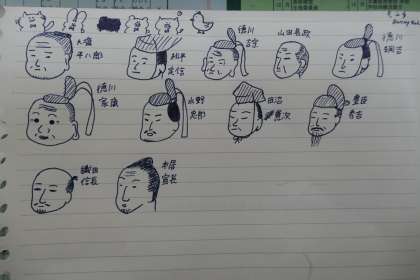 大塩
平八郎
松平
定信
徳川
吉宗
山田長政
徳川
綱吉
徳川
家康
水野
忠邦
田沼
意次
豊臣
秀吉
織田
信長
本居
宣長